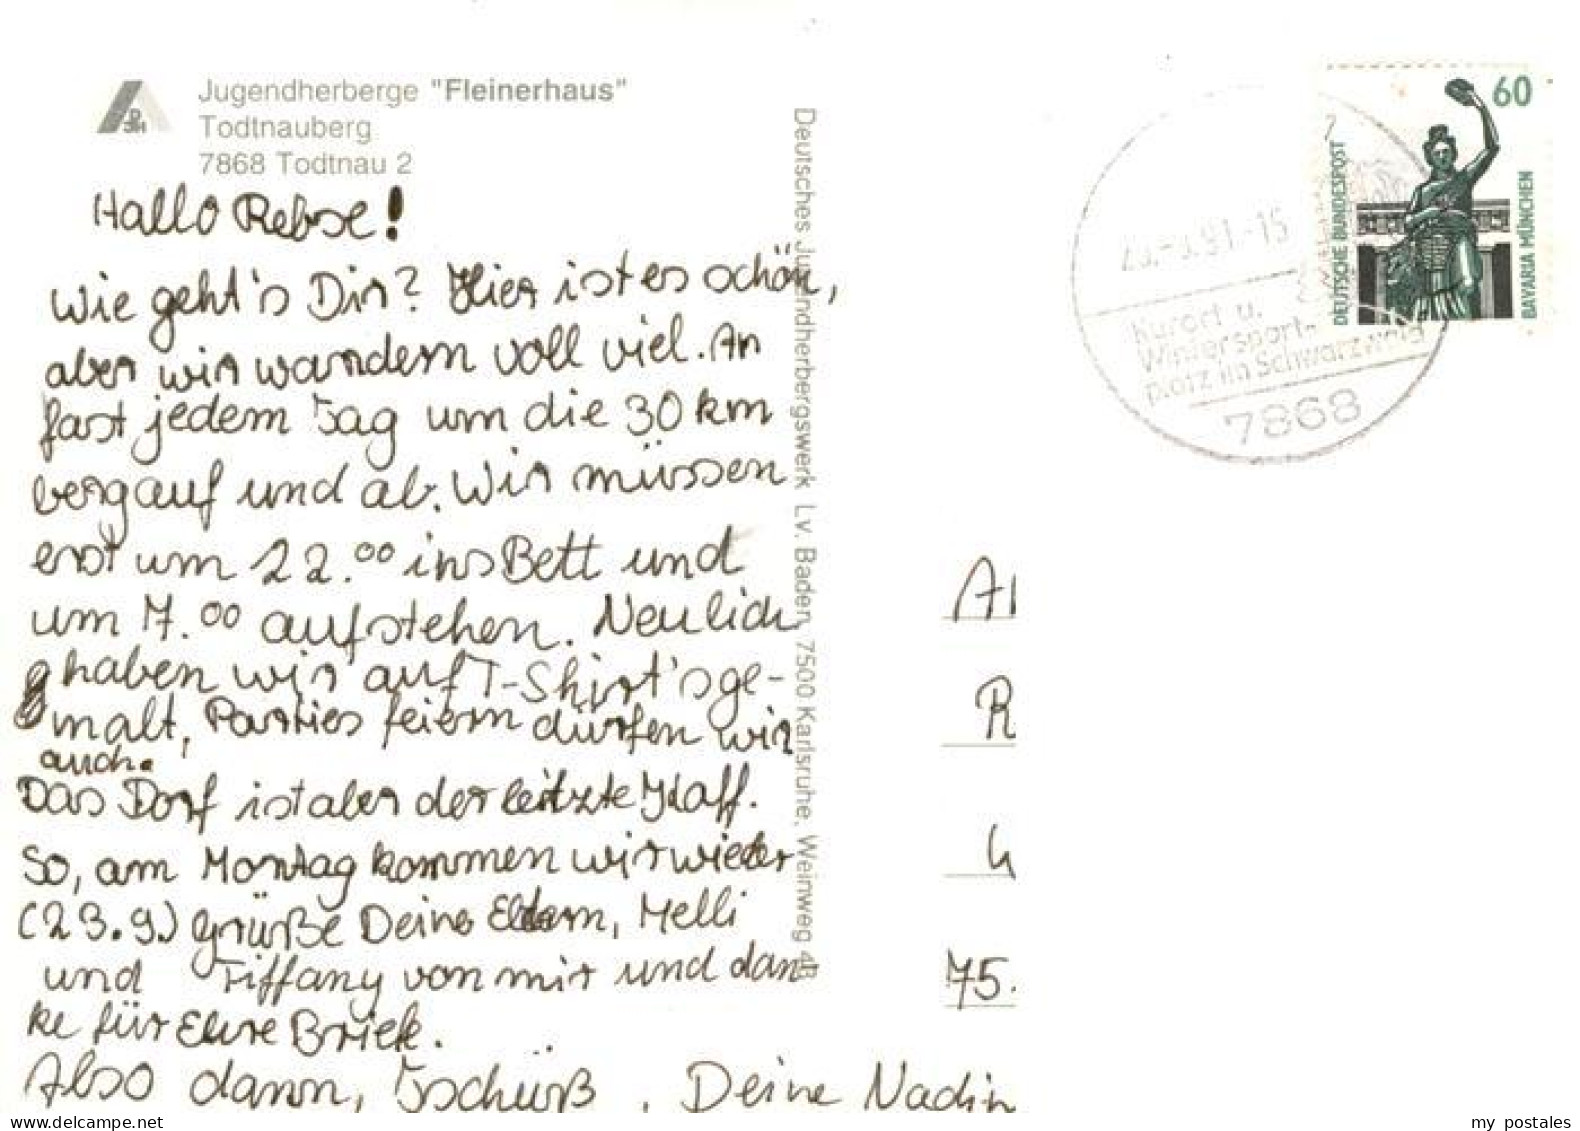 Jugendherberge "Fleinerhaus"
Todtnauberg
7868 Todtnau 2
Hallo Rebse!
Wie geht's Dir? Hier ist es schön,
aber wir wandern voll viel. An
fast jedem Tag um die 30 km
bergauf und ab. Wir müssen
erst um 22.00 ins Bett und
um 7.00 aufstehen. Neulich
haben wir auf T-Shirt's ge-
malt, Parties feiern dürfen wir
auch.
Das Dorf ist aber der letzte Kaff.
So, am Montag kommen wir wieder
(23.9.) Grüße Deine Eltern, Melli
und Tiffany von mir und dan-
ke für Eure Briefe.
Also dann, Tschüß. Deine Nadin
Deutsches Jugendherbergswerk Lv. Baden, 7500 Karlsruhe, Weinweg 43
60
DEUTSCHE BUNDESPOST
BAVARIA MÜNCHEN
91-15
Kurort u.
Wintersport-
platz im Schwarzwald
7868
R
75.
my postales